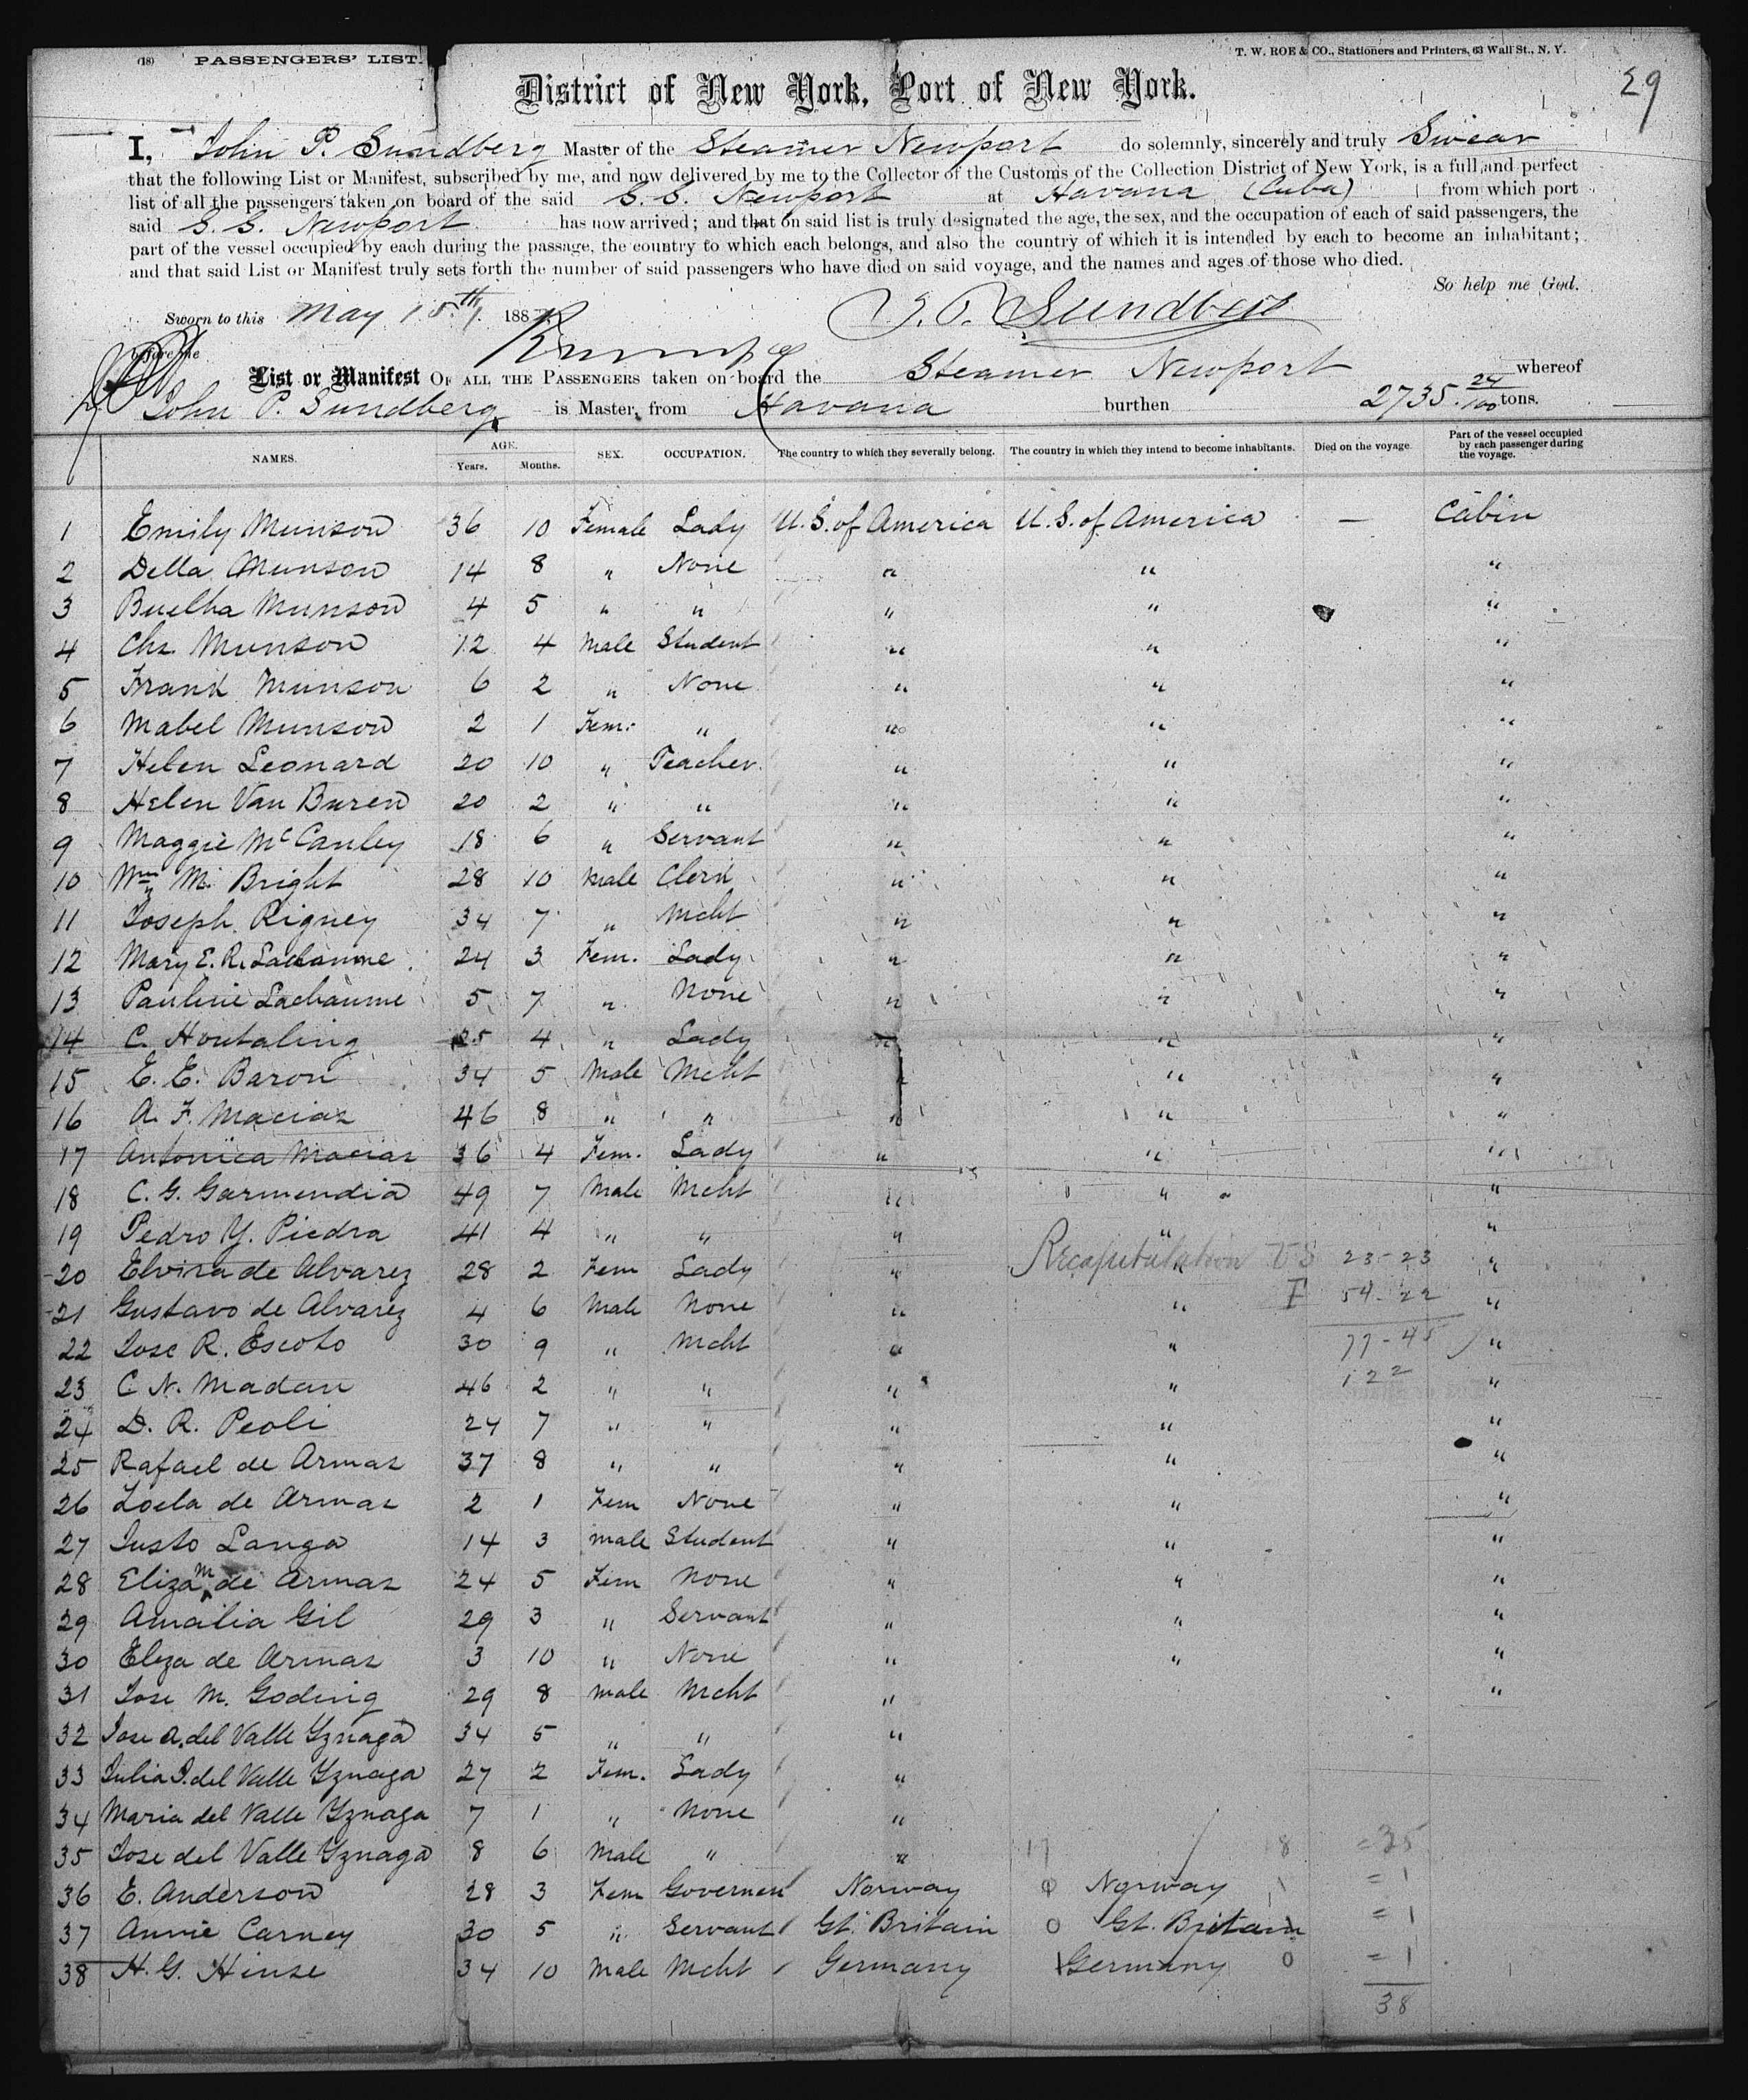 (18) PASSENGERS' LIST.
T. W. ROE & CO., Stationers and Printers, 63 Wall St., N. Y.
29
District of New York, Port of New York.
I, John P. Sundberg Master of the Steamer Newport do solemnly, sincerely and truly Swear
that the following List or Manifest, subscribed by me, and now delivered by me to the Collector of the Customs of the Collection District of New York, is a full and perfect
list of all the passengers taken on board of the said S. S. Newport at Havana (Cuba) from which port
said S. S. Newport has now arrived; and that on said list is truly designated the age, the sex, and the occupation of each of said passengers, the
part of the vessel occupied by each during the passage, the country to which each belongs, and also the country of which it is intended by each to become an inhabitant;
and that said List or Manifest truly sets forth the number of said passengers who have died on said voyage, and the names and ages of those who died.
So help me God.
Sworn to this May 15th 188 J. P. Sundberg
before me
List or Manifest OF ALL THE PASSENGERS taken on board the Steamer Newport whereof
John P. Sundberg is Master, from Havana burthen 2735. 24/100 tons.
NAMES. AGE. Years. Months. SEX. OCCUPATION. The country to which they severally belong. The country in which they intend to become inhabitants. Died on the voyage. Part of the vessel occupied by each passenger during the voyage.
1 Emily Munson 36 10 Female Lady U. S. of America U. S. of America — Cabin
2 Della Munson 14 8 " None " " "
3 Buelha Munson 4 5 " " " " "
4 Chs Munson 12 4 Male Student " " "
5 Frank Munson 6 2 " None " " "
6 Mabel Munson 2 1 Fem. " " " "
7 Helen Leonard 20 10 " Teacher. " " "
8 Helen Van Buren 20 2 " " " " "
9 Maggie McCauley 18 6 " Servant " " "
10 Wm M. Bright 28 10 Male Clerk " " "
11 Joseph Rigney 34 7 " Mcht " " "
12 Mary E. R. Lachaume 24 3 Fem. Lady " " "
13 Pauline Lachaume 5 7 " None " " "
14 C. Houtaling 25 4 " Lady " " "
15 E. E. Baron 34 5 Male Mcht " " "
16 A. F. Macias 46 8 " " " " "
17 Antonica Macias 36 4 Fem. Lady " " "
18 C. G. Garmendia 49 7 Male Mcht " " "
19 Pedro Y. Piedra 41 4 " " " " "
20 Elvira de Alvarez 28 2 Fem Lady " Recapitulation US 23-23 "
21 Gustavo de Alvarez 4 6 Male None " " F 54-22 "
22 Jose R. Escoto 30 9 " Mcht " " 77-45 "
23 C. N. Madan 46 2 " " " " 122 "
24 D. R. Peoli 24 7 " " " " "
25 Rafael de Armas 37 8 " " " " "
26 Zoela de Armas 2 1 Fem None " " "
27 Justo Langa 14 3 male Student " " "
28 Eliza M de Armas 24 5 Fem None " " "
29 Amalia Gil 29 3 " Servant " " "
30 Eliza de Armas 3 10 " None " " "
31 Jose M. Goding 29 8 male Mcht " "
32 Jose A. del Valle Yznaga 34 5 " " "
33 Julia P. del Valle Yznaga 27 2 Fem. Lady "
34 Maria del Valle Yznaga 7 1 " None "
35 Jose del Valle Yznaga 8 6 Male " " 17 18 =35
36 E. Anderson 28 3 Fem Governess Norway 0 Norway 1 =1
37 Annie Carney 30 5 " Servant Gt. Britain 0 Gt. Britain 1 =1
38 H. G. Hinse 34 10 Male Mcht Germany 1 Germany 0 =1
38